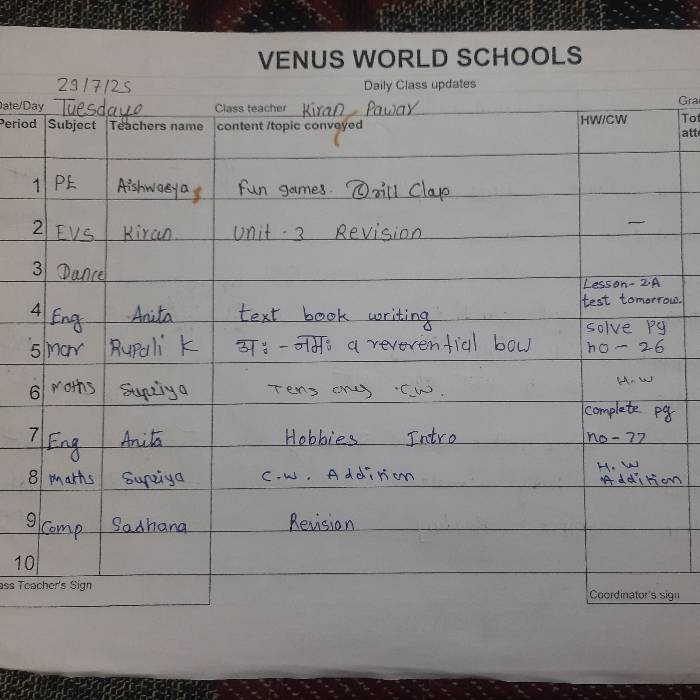 VENUS WORLD SCHOOLS
29/7/25 Daily Class updates
Date/Day Tuesdaye Class teacher Kiran Pawar Gra
Period Subject Teachers name content /topic conveyed HW/CW Tot
atte
1 PE Aishwarya Fun games. Drill Clap
2 EVS Kiran Unit - 3 Revision —
3 Dance
Lesson-2A
4 Eng Anita text book writing test tomorrow.
solve pg
5 Mar Rupali K अः - नमः a reverential bow no - 26
6 Maths Supriya Tens ones C.W. H.W
complete pg
7 Eng Anita Hobbies Intro no - 77
8 Maths Supriya C.W. Addition H.W
Addition
9 Comp Sadhana Revision
10
ass Teacher's Sign Coordinator's sign